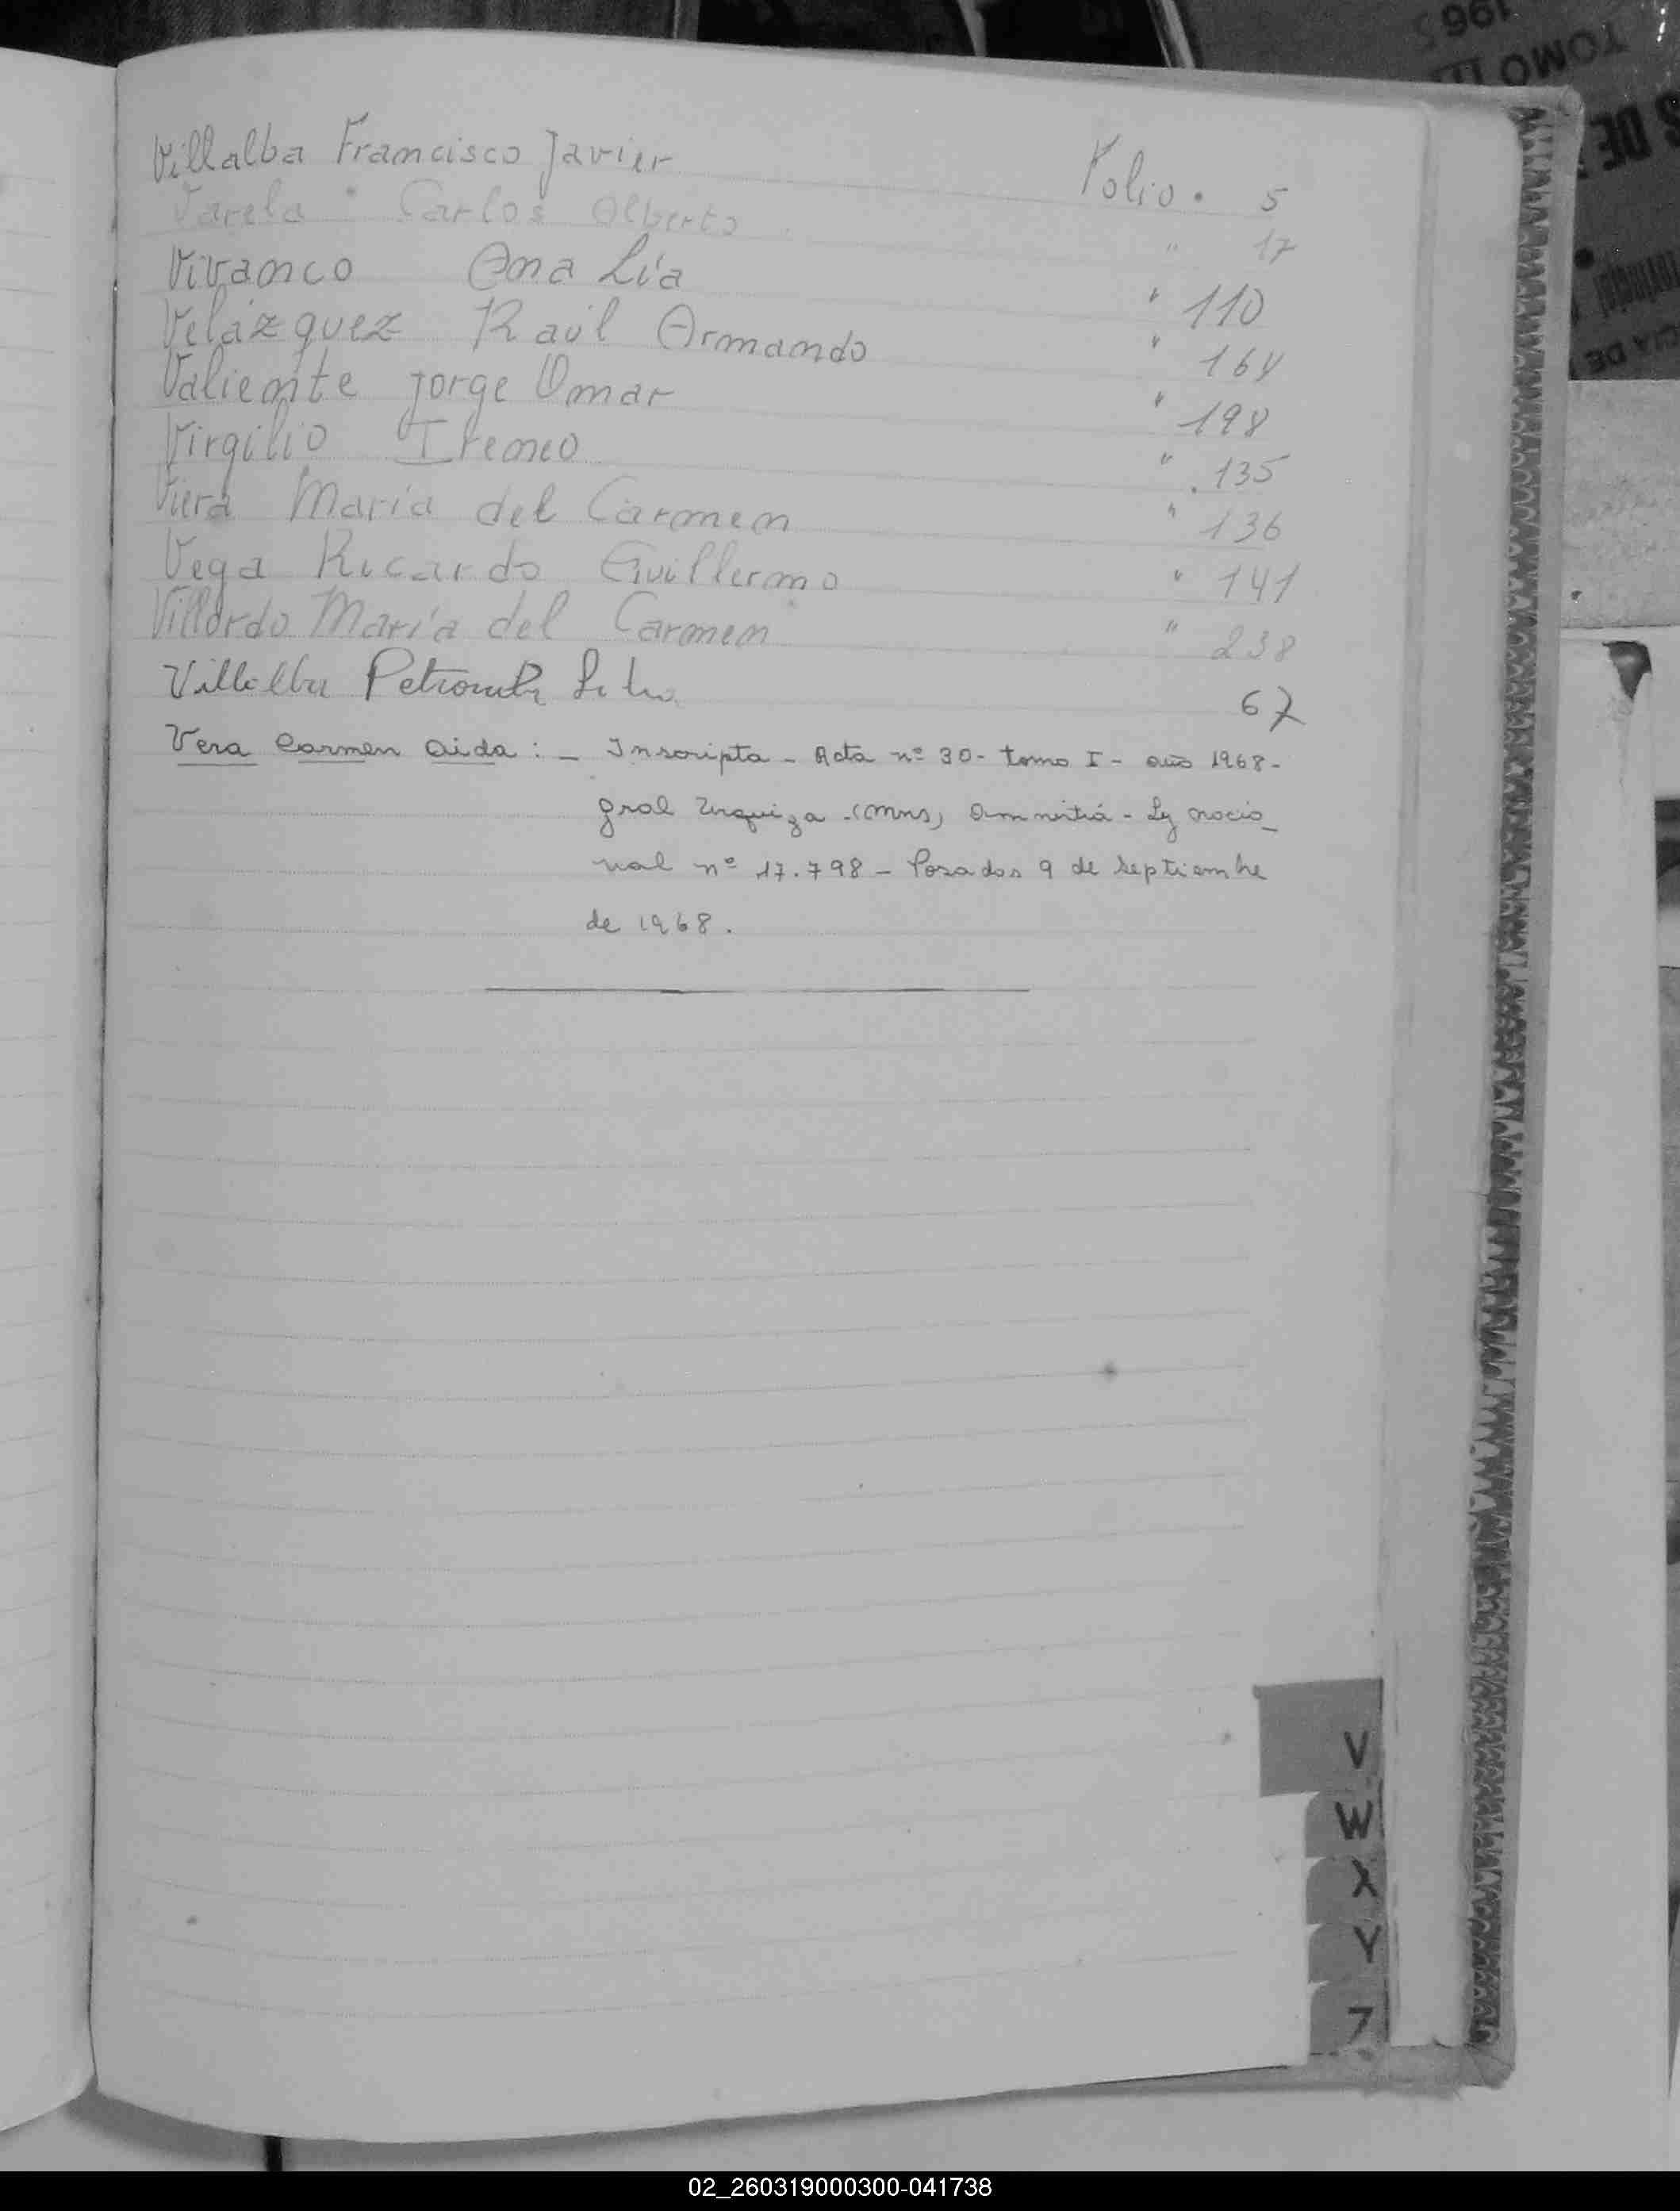 Villalba Francisco Javier Folio. 5
Varela Carlos Alberto " 17
Vivanco Ana Lía " 110
Velázquez Raúl Armando " 164
Valiente Jorge Omar " 198
Virgilio Ireneo " 135
Viera María del Carmen " 136
Vega Ricardo Guillermo " 141
Villordo María del Carmen " 238
Villalba Petrona 67
Vera Carmen Aida : _ Inscripta - Acta nº 30 - tomo I - año 1968 -
Gral Urquiza - (Mns) Amnistía - Ley nacio_
nal nº 17.798 - Posadas 9 de septiembre
de 1968.
V
W
X
Y
Z
196
TOMO III
S DE
CIA DE
02_260319000300-041738